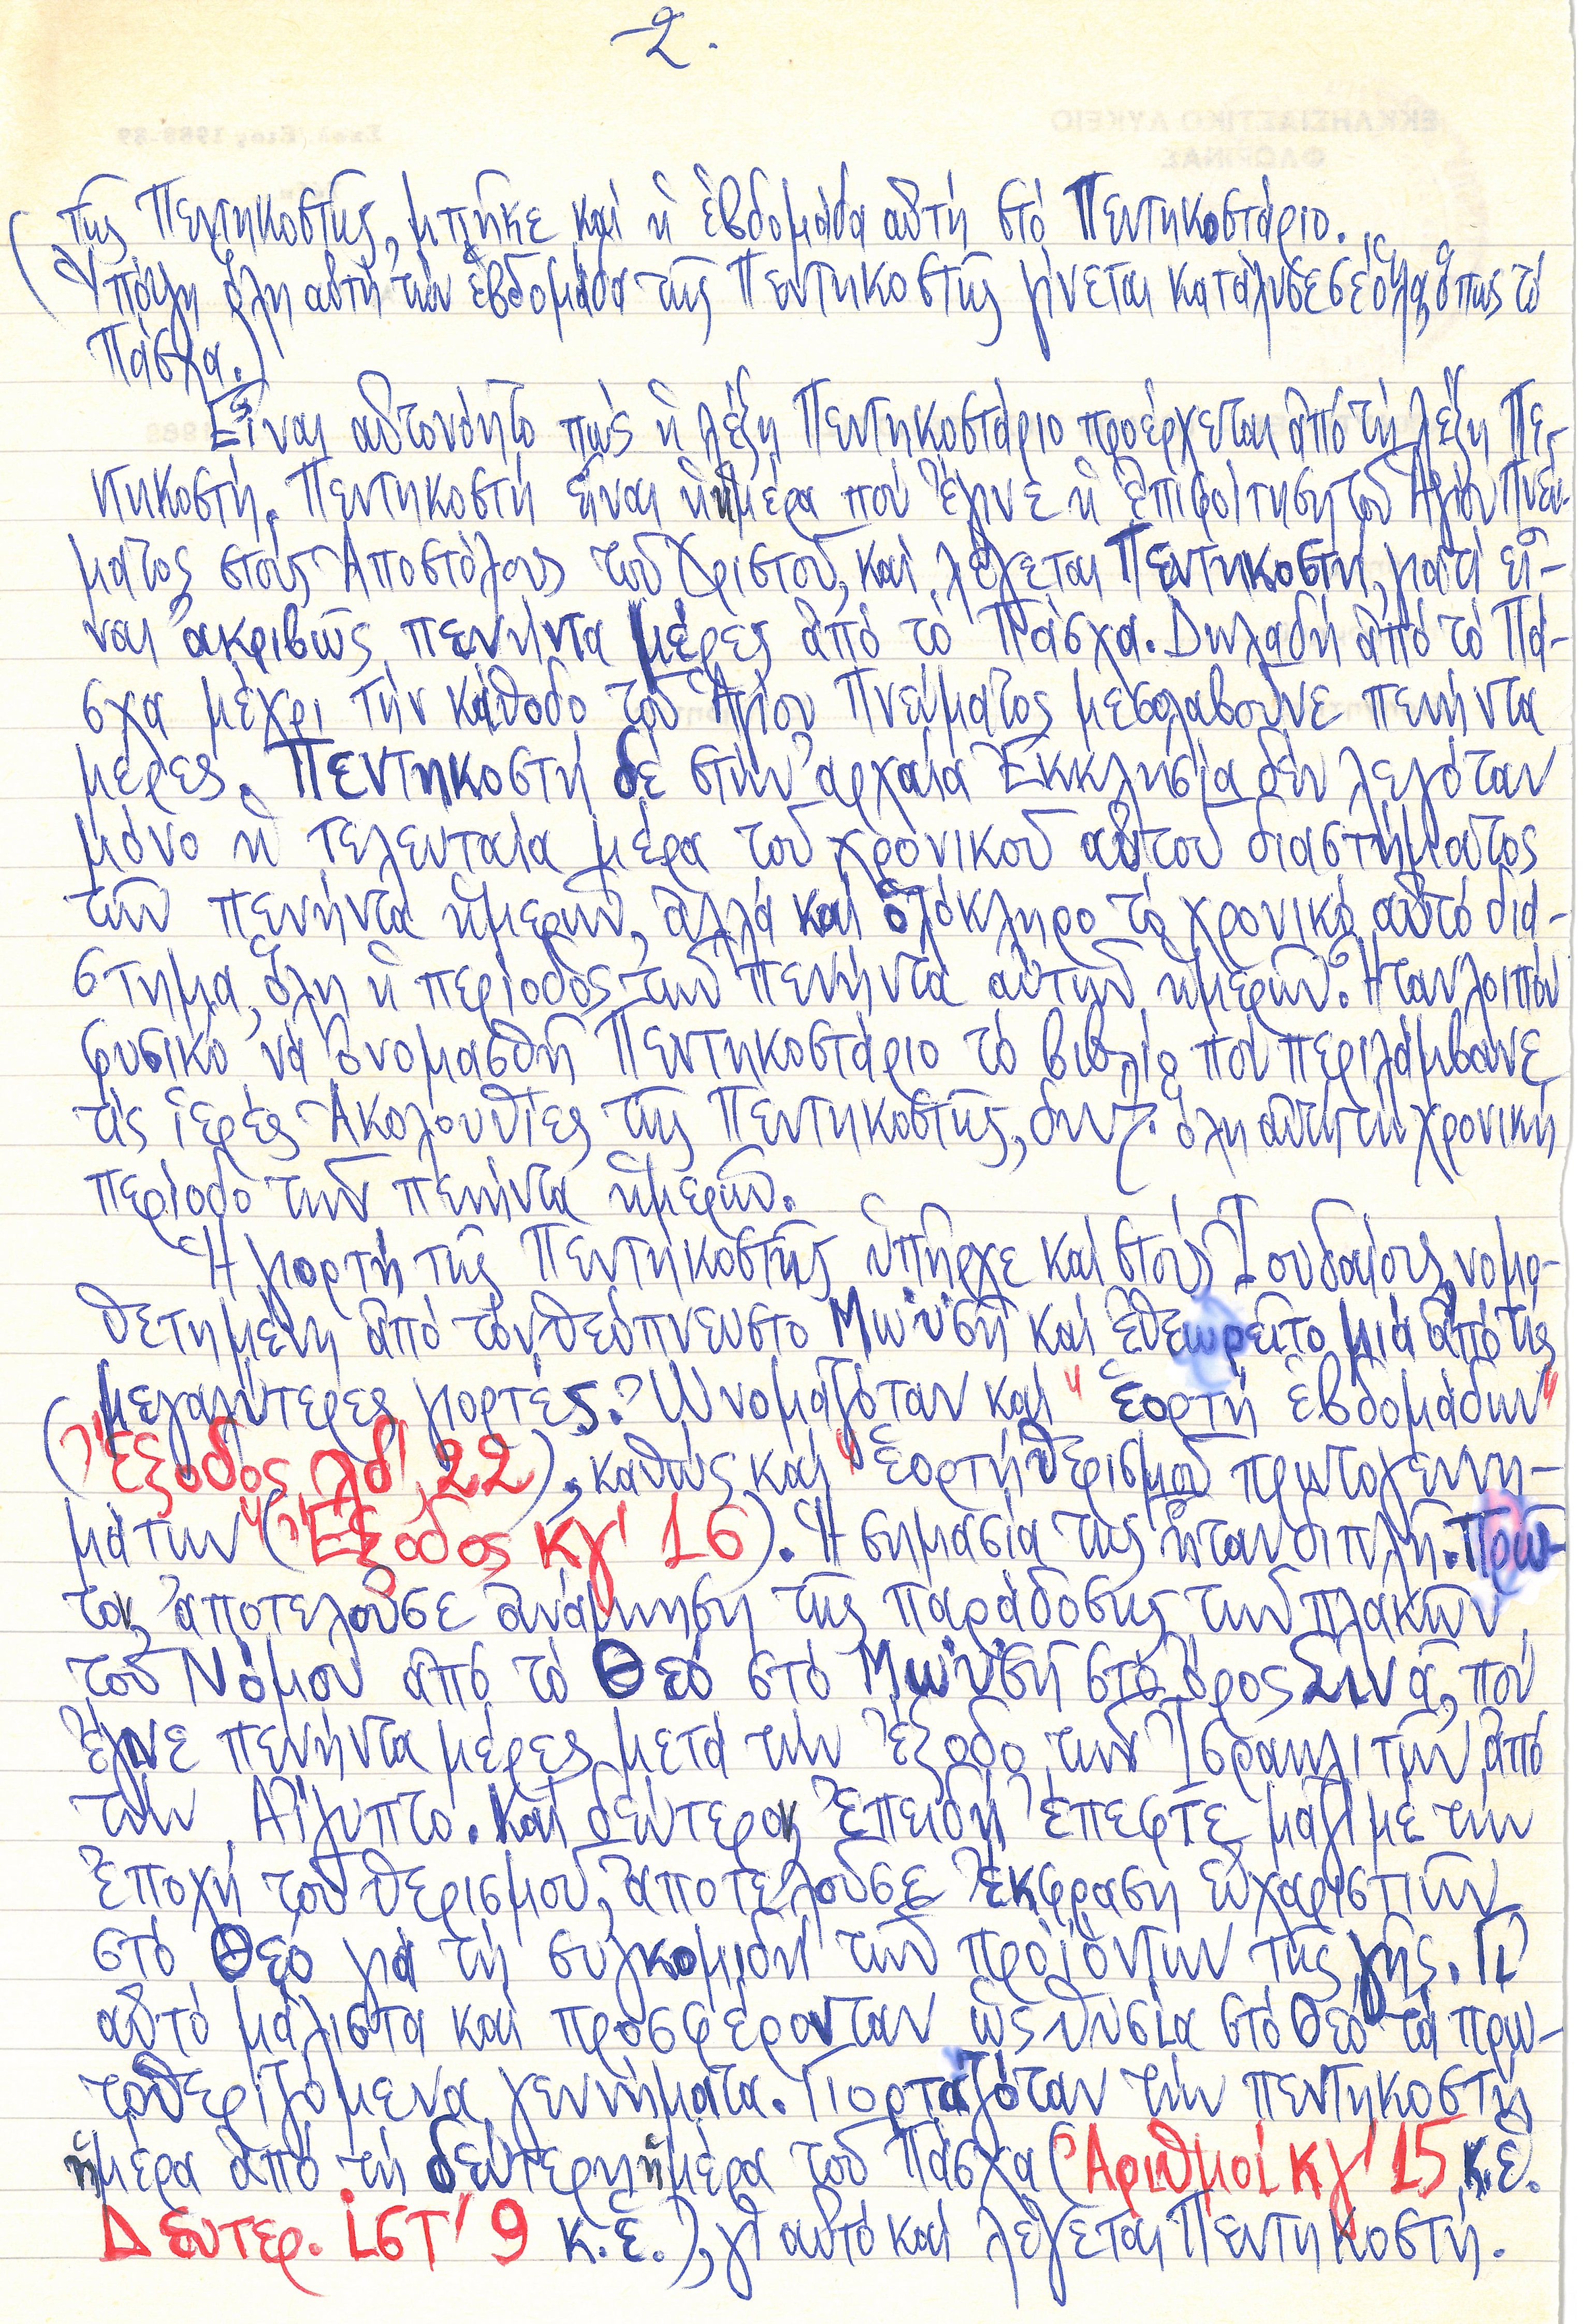 2.
τῆς Πεντηκοστῆς, μπῆκε καί ἡ ἑβδομάδα αὐτή στό Πεντηκοστάριο.
(Ὑπόψη ὅλη αὐτή τήν ἑβδομάδα τῆς Πεντηκοστῆς γίνεται κατάλυσε σέ ὅλα, ὅπως τό
Πάσχα.)
Εἶναι αὐτονόητο πώς ἡ λέξη Πεντηκοστάριο προέρχεται ἀπό τή λέξη Πε-
ντηκοστή. Πεντηκοστή εἶναι ἡ ἡμέρα πού ἔγινε ἡ ἐπιφοίτηση τοῦ Ἁγίου Πνεύ-
ματος στούς Ἀποστόλους τοῦ Χριστοῦ, καί λέγεται Πεντηκοστή, γιατί εἶ-
ναι ἀκριβῶς πενήντα μέρες ἀπό τό Πάσχα. Δηλαδή ἀπό τό Πά-
σχα μέχρι τήν κάθοδο τοῦ Ἁγίου Πνεύματος μεσολαβοῦνε πενήντα
μέρες. Πεντηκοστή δέ στήν ἀρχαία Ἐκκλησία δέν λεγόταν
μόνο ἡ τελευταία μέρα τοῦ χρονικοῦ αὐτοῦ διαστήματος
τῶν πενήντα ἡμερῶν, ἀλλά καί ὁλόκληρο τό χρονικό αὐτό διά-
στημα, ὅλη ἡ περίοδος τῶν πενήντα αὐτῶν ἡμερῶν. Ἦταν λοιπόν
φυσικό νά ὀνομασθῆ Πεντηκοστάριο τό βιβλίο πού περιλάμβανε
τίς ἱερές Ἀκολουθίες τῆς Πεντηκοστῆς, δηλ. ὅλη αὐτή τή χρονική
περίοδο τῶν πενήντα ἡμερῶν.
Ἡ γιορτή τῆς Πεντηκοστῆς ὑπῆρχε καί στούς Ἰουδαίους, νομο-
θετημένη ἀπό τόν θεόπνευστο Μωϋσῆ καί ἐθεωρεῖτο μιά ἀπό τίς
μεγαλύτερες γιορτές. Ὠνομαζόταν καί "ἑορτή ἑβδομάδων"
(Ἔξοδος λδ', 22), καθώς καί "ἑορτή θερισμοῦ πρωτογεννη-
μάτων" (Ἔξοδος κγ' 16). Ἡ σημασία της ἦταν διπλῆ. Πρῶ-
τον, ἀποτελοῦσε ἀνάμνηση τῆς παράδοσης τῶν πλακῶν
τοῦ Νόμου ἀπό τό Θεό στό Μωϋσῆ στό ὄρος Σινᾶ, πού
ἔγινε πενήντα μέρες μετά τήν ἔξοδο τῶν Ἰσραηλιτῶν ἀπό
τήν Αἴγυπτο. Καί δεύτερον, ἐπειδή ἔπεφτε μαζί με τήν
ἐποχή τοῦ θερισμοῦ, ἀποτελοῦσε ἔκφραση εὐχαριστιῶν
στό Θεό γιά τή συγκομιδή τῶν προϊόντων τῆς γῆς. Γι'
αὐτό μάλιστα καί προσφέρονταν ὡς θυσία στό Θεό τά πρω-
τοθεριζόμενα γεννήματα. Γιορταζόταν τήν πεντηκοστή
ἡμέρα ἀπό τή δεύτερη ἡμέρα τοῦ Πάσχα (Ἀριθμοί κγ' 15 κ.ἑ.
Δευτερ. ιστ' 9 κ.ἑ.), γι' αὐτό καί λέγεται Πεντηκοστή.